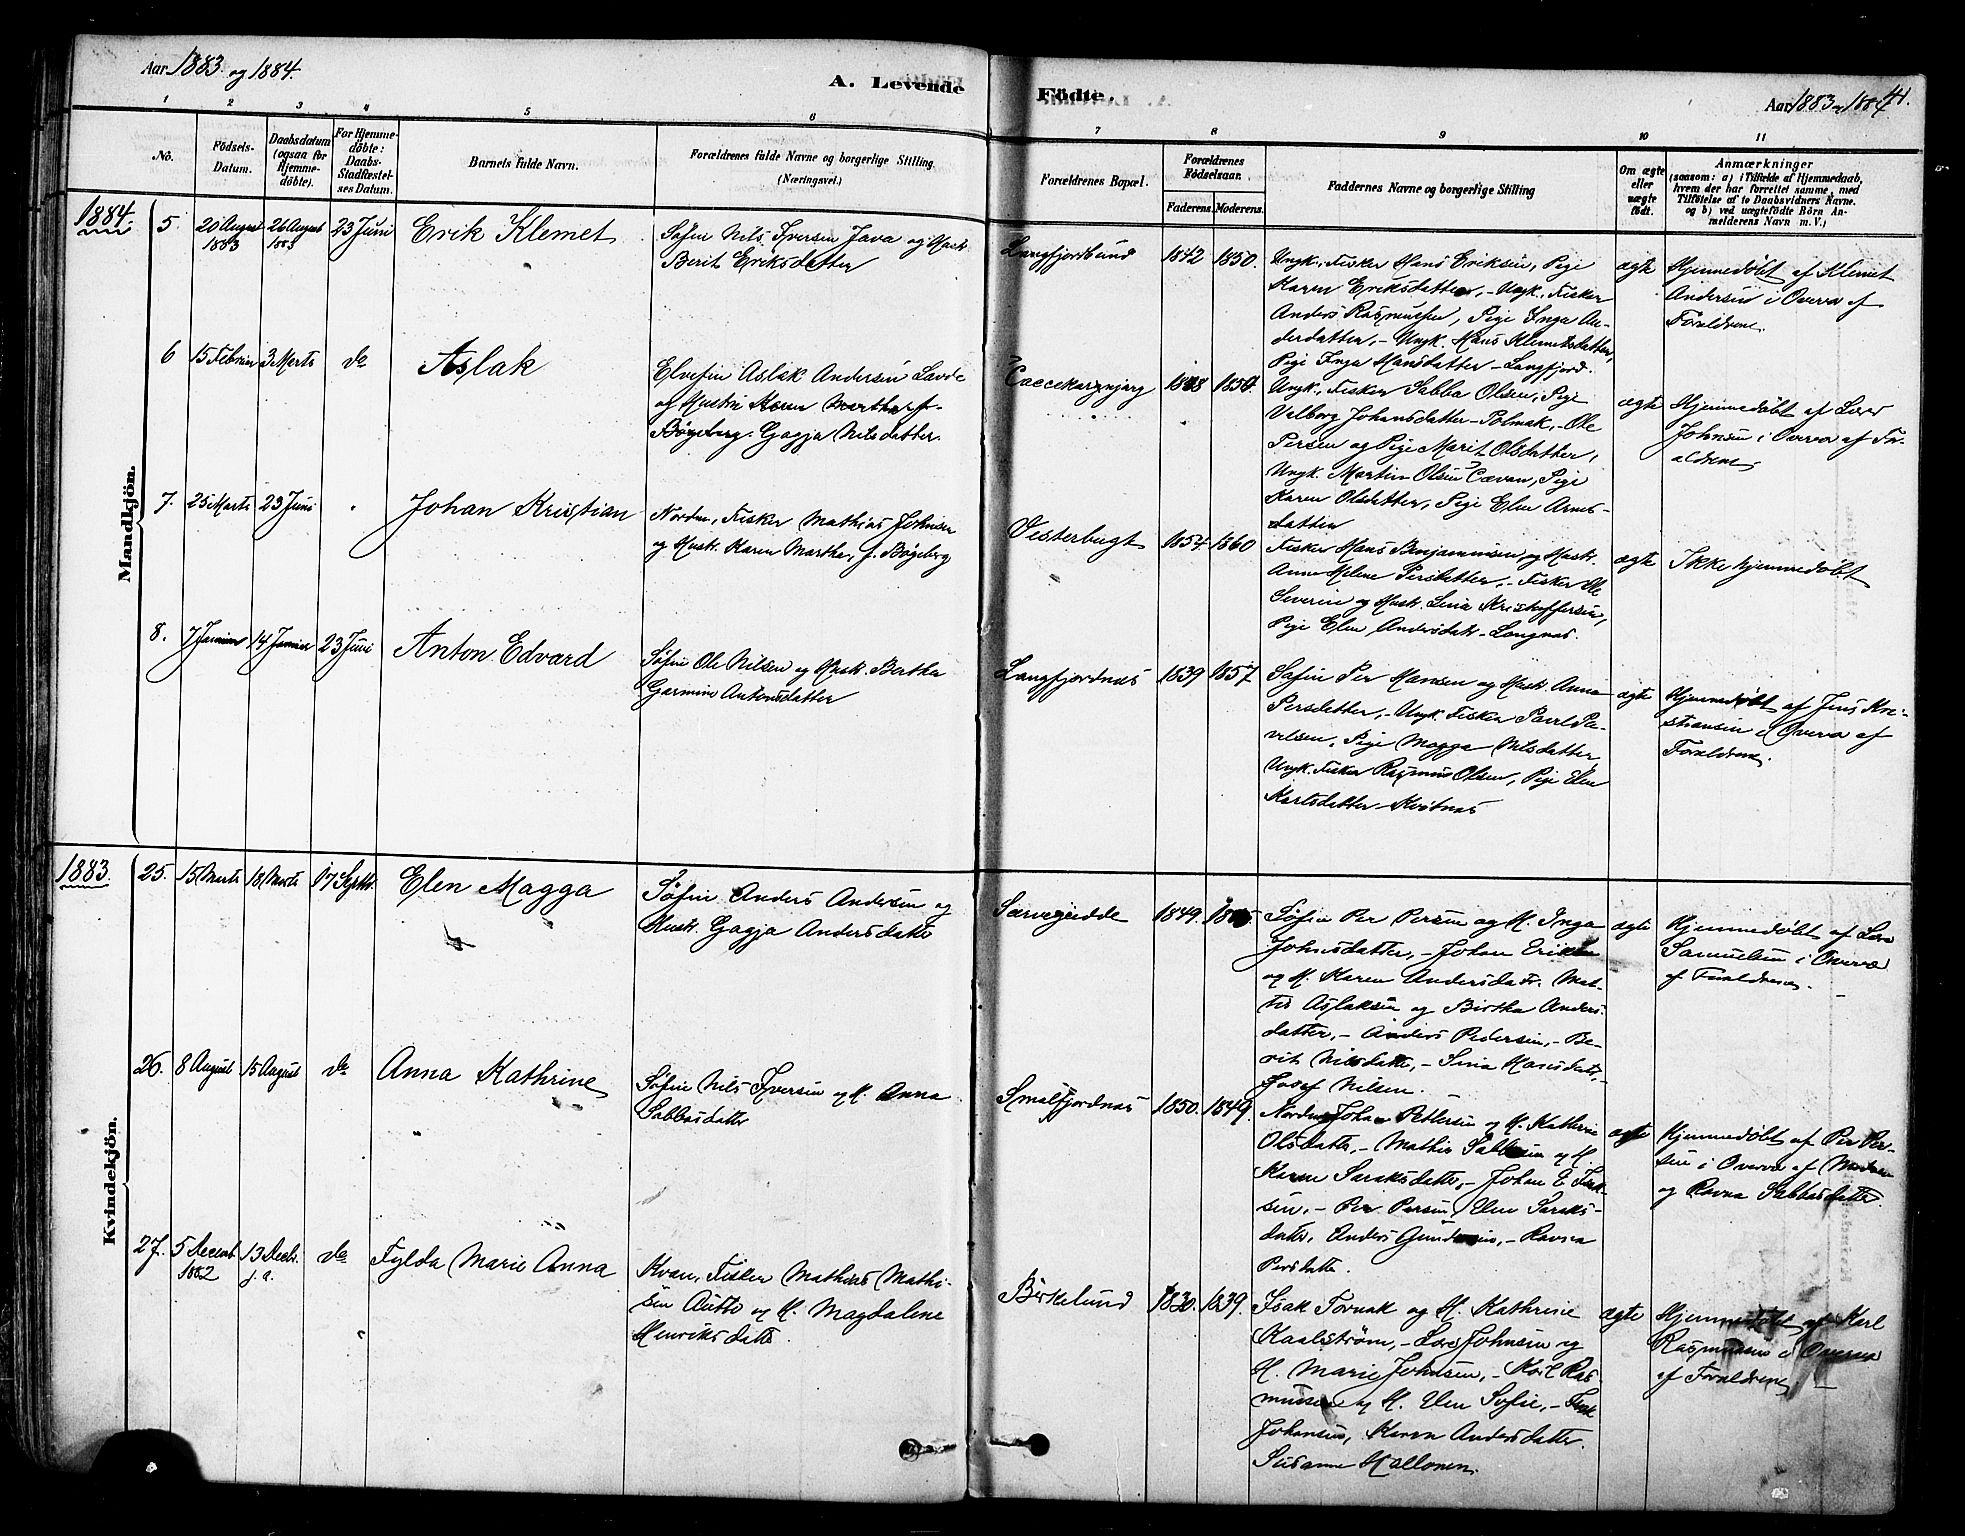 Aar 1883 og 1884.
A. Levende
1 2 3 4 5 6
No.
Födsels-
Datum.
Daabsdatum
(ogsaa for
Hjemme-
döbte).
For Hjemme-
döbte:
Daabs-
Stadfæstel-
ses Datum.
Barnets fulde Navn.
Forældrenes fulde Navne og borgerlige Stilling.
(Næringsvei.)
1884.
Mandkjön.
5. 20 August 26 August 23 Juni Erik Klemet
1883 1883
Søfin Nils Iversen Java og Hust.
Berit Eriksdatter
6 15 Februar 3 Marts do Aslak
Elvefin Aslak Andersen
og Hustru Karen Martha f.
Bøgeberg. Gagja Nilsdatter.
7. 25 Marts 23 Juni " Johan Kristian
Nordm., Fisker Mathias Johnsen
og Hust. Karen Martha, f. Bøgeberg
8. 7 Januar 14 Januar 23 Juni Anton Edvard
Søfin Ole Nilsen og Hust. Bertha
Garmine Antonsdatter
1883.
Kvindekjön.
25. 15 Marts 18 Marts 17 Septb. Elen Magga
Søfin Anders Andersen og
Hust. Gagja Andersdatter
26. 8 August 15 August do Anna Kathrine
Søfin Nils Iversen og H. Anna
Sabbasdatter
27. 5 Decemb. 13 Decbr. do Fylda Marie Anna
1882 f. a.
Kvan, Fisker Mathias Mathi-
sen Autto og H. Magdalene
Henriksdatter.
Födte.
Aar 1883 og 1884
41.
7 8 9 10 11
Forældrenes Bopæl.
Forældrenes
Födselsaar.
Faderens. Moderens.
Faddernes Navne og borgerlige Stilling
Om ægte
eller
uægte
födt.
Anmærkninger
(saasom: a) i Tilfælde af Hjemmedaab,
hvem der har forrettet samme, med
Tilföielse af to Daabsvidners Navne.
og b) ved uægtefödte Börn An-
melderens Navn m. V.)
Langfjordbund 1842 1850.
Ungk., Fisker Hans Eriksen, Pige
Karen Eriksdatter, - Ungk., Fisker
Anders Rasmussen, Pige Inga An-
dersdatter, - Ungk. Hans Klemetsdatter,
Pige Inga Hansdatter - Langfjord.
ægte
Hjemmedøbt af Klemet
Andersen i Overv. af
Forældrene.
1854.
Ungk., Fisker Sabba Olsen, Pige
Valborg Johansdatter - Polmak, - Ole
Persen og Pige Marit Olsdatter,
Ungk. Martin Olsen Cævan, Pige
Karen Olsdatter, Pige Elen Arnes-
datter
ægte
Hjemmedøbt af Lærer
Johnsen i Overv. af For-
ældrene
Vesterbugt 1854 1860
Fisker Hans Benjaminsen og Hust.
Anne Helene Persdatter, - Fisker Ole
Severin og Hust. Lina Kristoffersen,
Pige Elen Andersdatr - Langnæs.
ægte
Ikke hjemmedøbt
Langfjordnæs 1839 1857
Søfin Per Hansen og Hust. Anna
Persdatter, - Ungk. Fisker Pavel Pa-
velsen, Pige Magga Nilsdatter,
Ungk. Fisker Rasmus Olsen, Pige Elen
Karlsdatter - Kvitnæs
ægte
Hjemmedøbt af Jens Kri-
stiansen i Overv. af
Forældrene.
1849.
Søfin Per Persen og H. Inga
Johnsdatter, - Johan Eriksen
og H. Karen Andersdatr. Mat-
tis Aslaksen og Birtha Anders-
datter, - Anders Pedersen, - Be-
rit Nilsdatter, - Sina Hansdatr, -
Josef Nilsen.
ægte
Hjemmedøbt af Lars
Samuelsen i Overvær
af Forældrene.
Smalfjordnæs 1850. 1849.
Nordm. Johan Pettersen og H. Kathrine
Olsdatter, - Mathis Sabbasen og H.
Karen Saraksdatter, - Johan E. Isak-
sen, - Per Persen, Elen Saraks-
datter, Anders Gundersen, - Ravna
Persdatter.
ægte
Hjemmedøbt af Per Per-
sen i Overvær af Moderen
og Ravna Sabbasdatter.
Birkelund 1830. 1839.
Isak Tornak og H. Kathrine
Kaalstrøm, - Lars Johnsen og
H. Marie Johnsen, - Karl Ras-
mussen og H. Elen Sofie, - Isak
Johansen, Karen Andersdatter.
Susanne Hallonen.
ægte
Hjemmedøbt af Karl
Rasmussen i Overvær
af Forældrene.